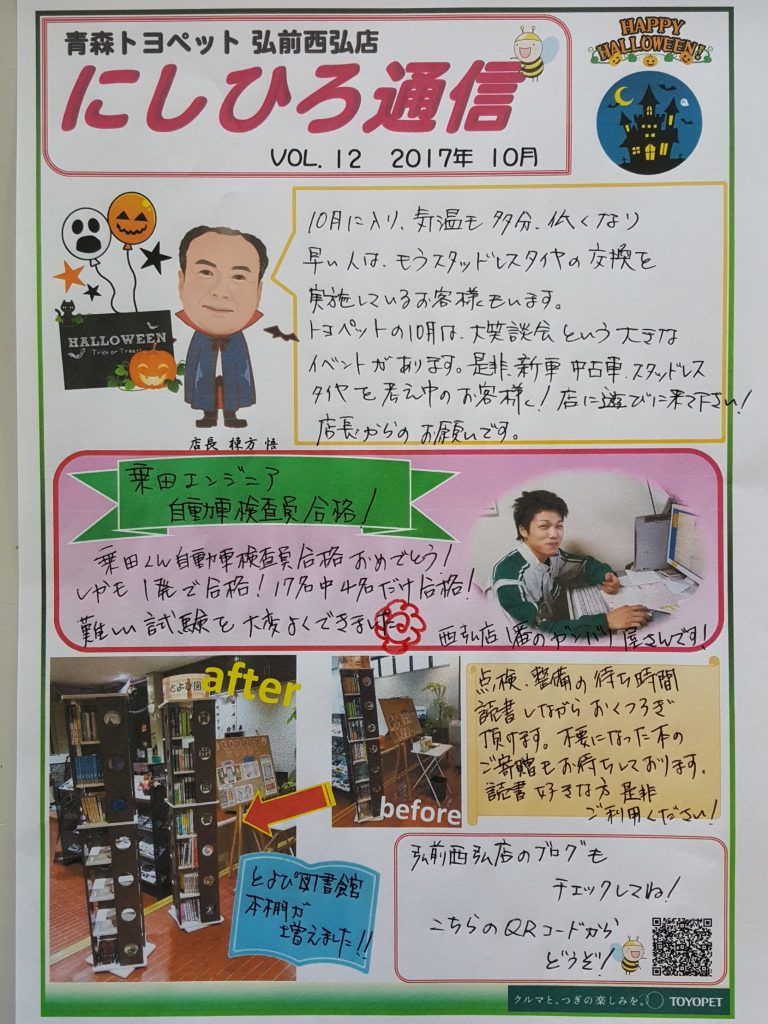 青森トヨペット 弘前西弘店
にしひろ通信
VOL.12 2017年 10月
HAPPY
HALLOWEEN!
10月に入り、気温も多分、低くなり
早い人は、もうスタッドレスタイヤの交換を
実施しているお客様もいます。
トヨペットの10月は、大笑談会という大きな
イベントがあります。是非、新車 中古車、スタッドレス
タイヤを考え中のお客様く!店に遊びに来て下さい!
店長からのお願いです。
HALLOWEEN
Trick or Treat
店長 棟方 悟
乗田エンジニア
自動車検査員合格!
乗田くん自動車検査員合格おめでとう!
しかも1発で合格!17名中4名だけ合格!
難しい試験を大変よくできました
西弘店1番のガンバリ屋さんです!
after
before
とよぴ図
点検、整備の待ち時間
読書しながらおくつろぎ
頂けます。不要になった本の
ご寄贈もお待ちしております。
読書好きな方是非
ご利用ください!
とよぴ図書館
本棚が
増えました!!
弘前西弘店のブログも
チェックしてね!
こちらのQRコードから
どうぞ!
クルマと、つぎの楽しみを。 TOYOPET